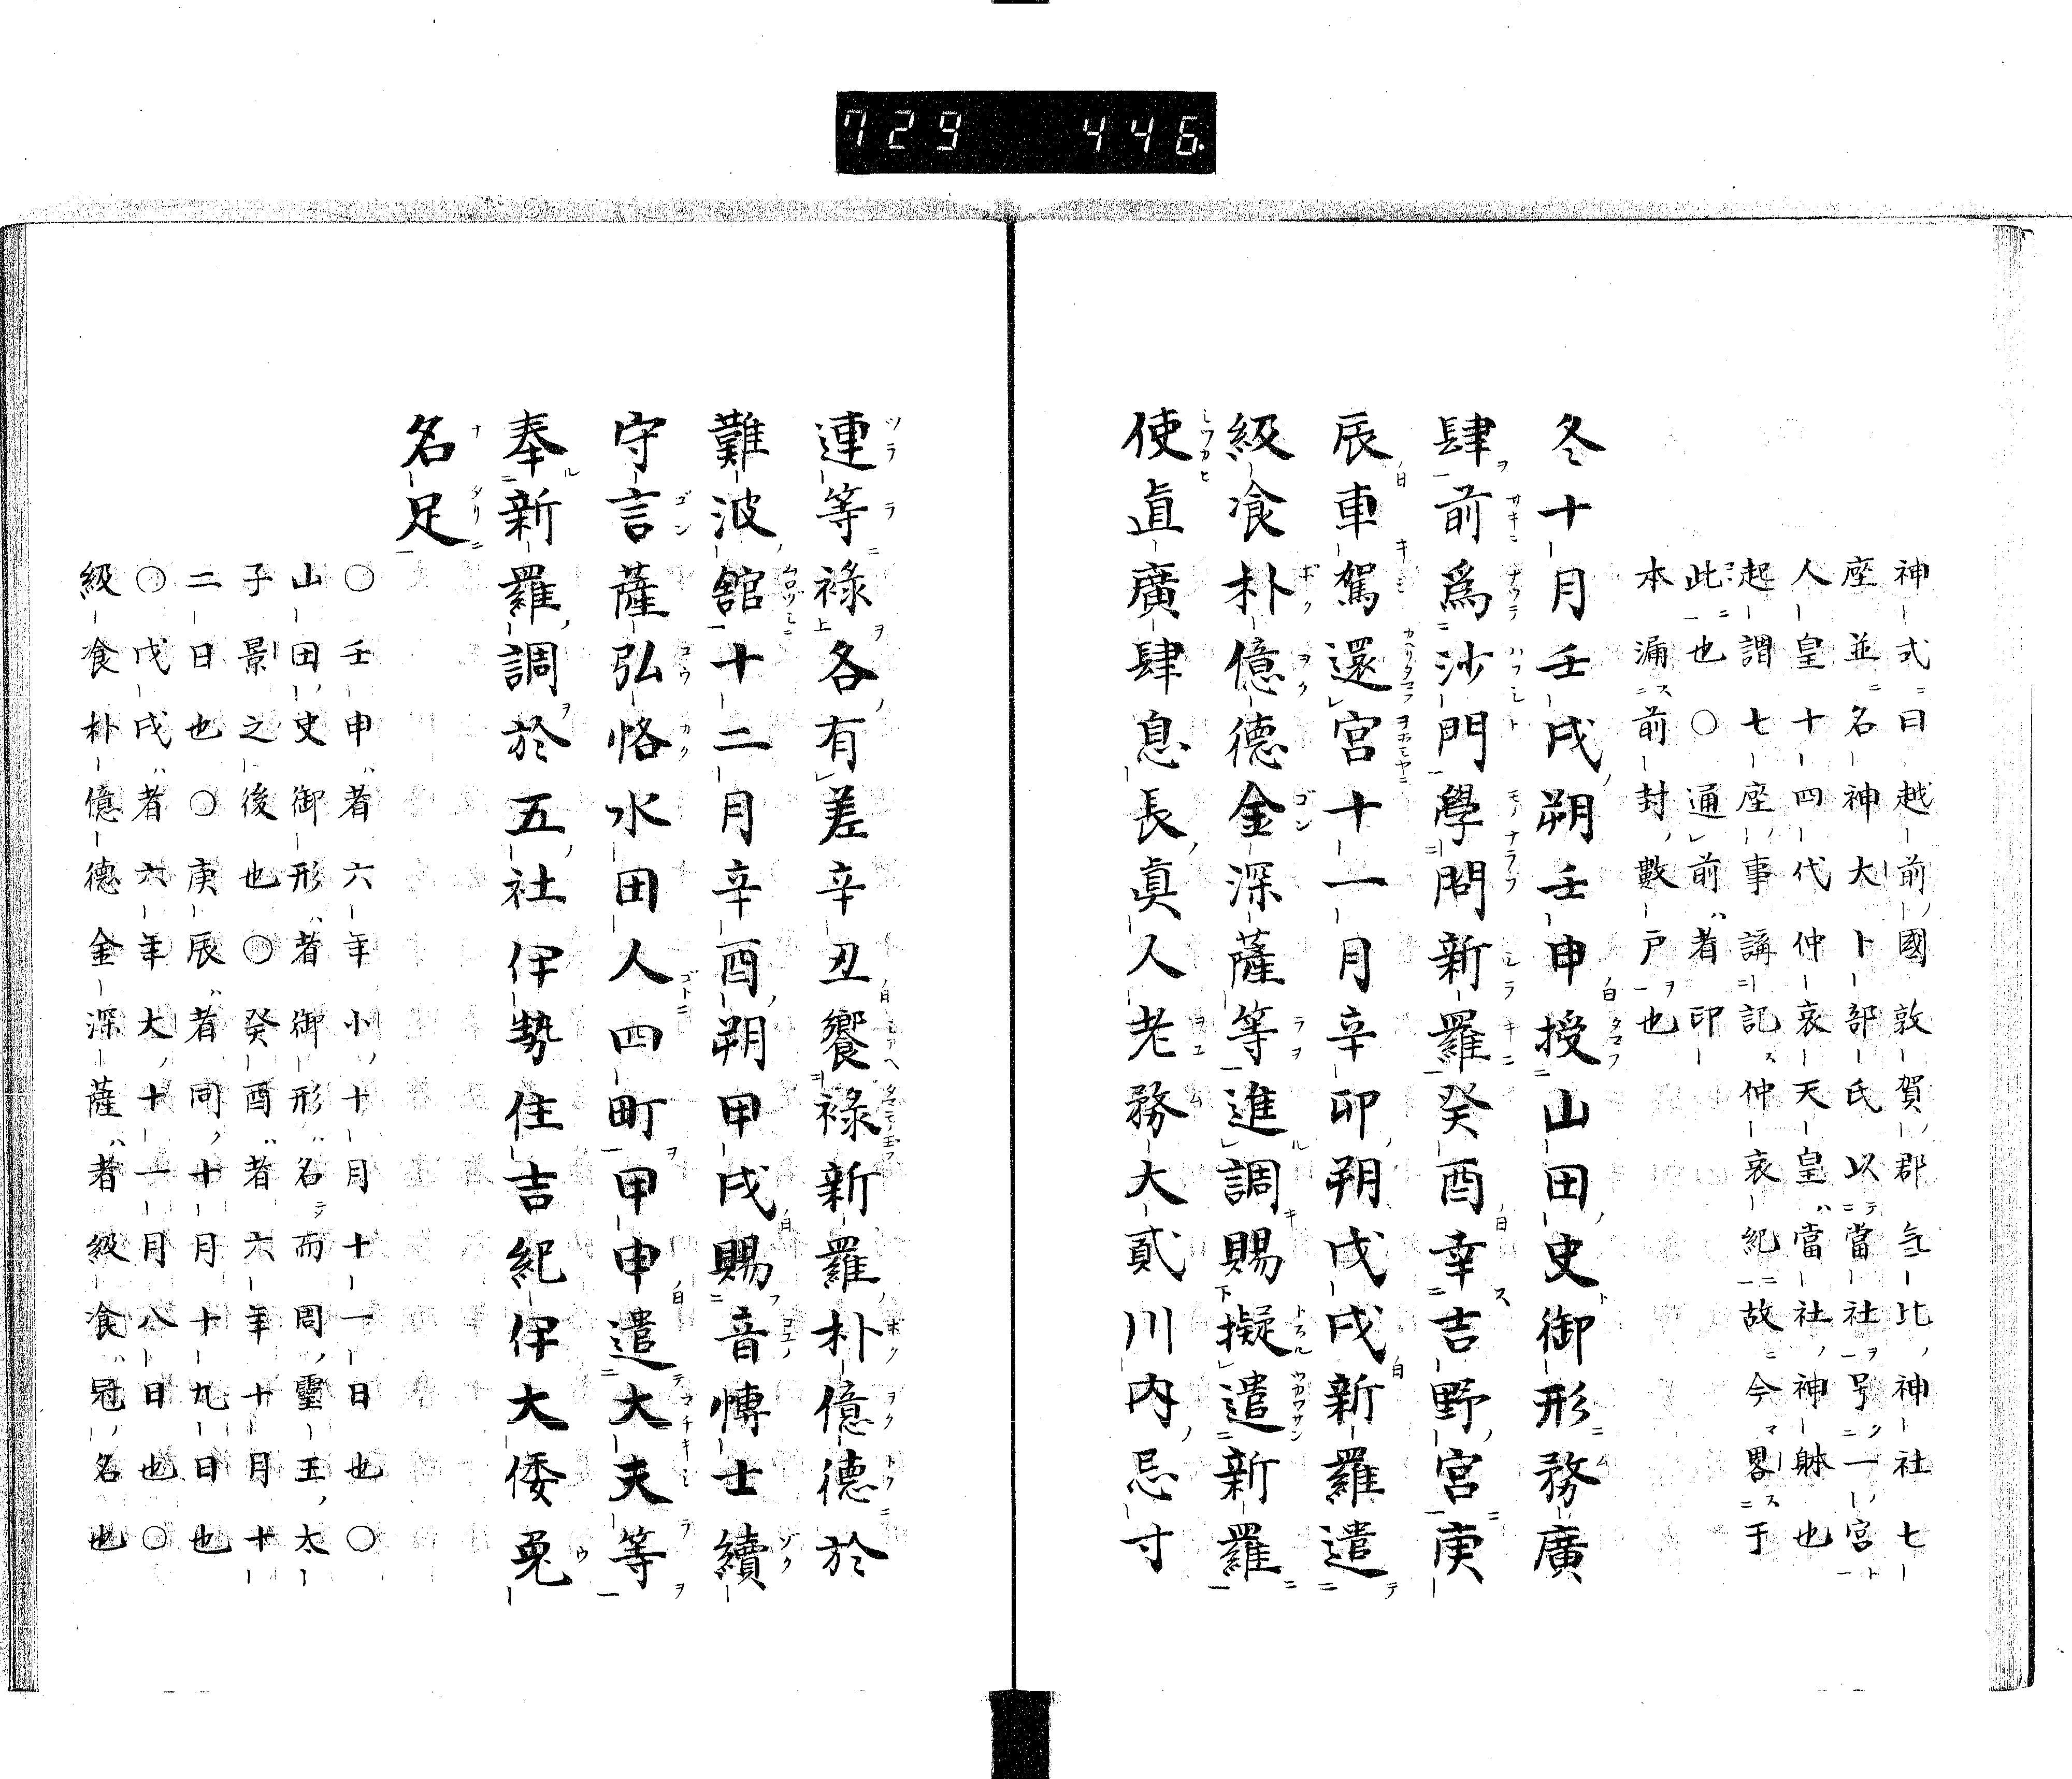 729 446
神式曰越前國敦賀郡气比神社七
座並名神大卜部氏以當社号一宮
人皇十四代仲哀天皇當社神躰也
起謂七座事講記仲哀紀故今畧于
此也〇通前者印
本漏前封數戸也
冬十月壬戌朔壬申授山田史御形務廣
肆前爲沙門學問新羅癸酉幸吉野宮庚
辰車駕還宮十一月辛卯朔戊戌新羅遣
級飡朴億德金深薩等進調賜擬遣新羅
使直廣肆息長眞人老務大貳川内忌寸
連等祿各有差辛丑饗祿新羅朴億德於
難波館十二月辛酉朔甲戌賜音博士續
守言薩弘恪水田人四町甲申遣大夫等
奉新羅調於五社伊勢住吉紀伊大倭菟
名足
〇壬申者六年小十月十一日也〇
山田史御形者御形名而周靈王太
子景之後也〇癸酉者六年十月十
二日也〇庚辰者同十月十九日也
〇戊戌者六年大十一月八日也〇
級飡朴億德金深薩者級飡冠名也